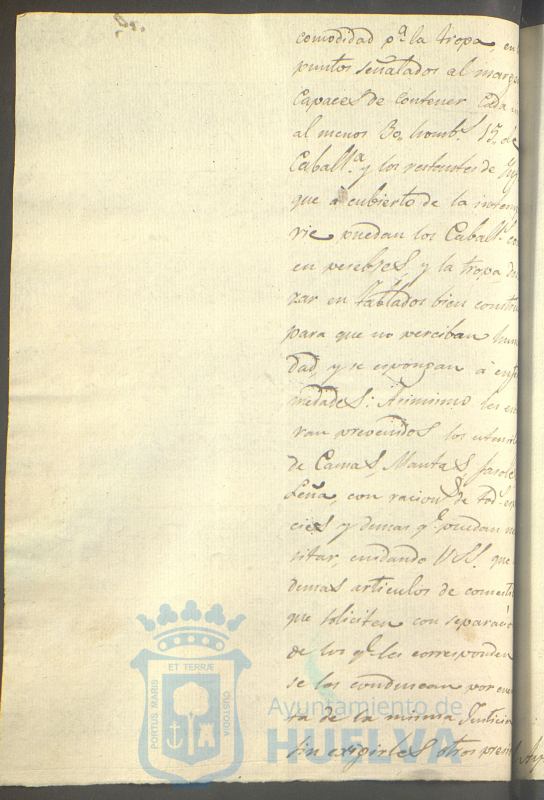 comodidad pª la tropa, en
puntos señalados al marg
Capaces de contener cada
al menos 30,, hombˢ 15,, de
Caballª y los restantes de Yn
que à cubierto de la intem
rie puedan los Caballˢ co
en pesebres, y la tropa, de
zar en tablados bien constru
para que no perciban hum
dad, y se espongan à enfe
medades: Asimismo les es
ran prevenidos los utensil
de Camas, Mantas, farol
Leña, con racionˢ de todˢ espe
cies y demas qᵉ puedan ne
sitar, cuidando VSS. que
demas articulos de comesti
que soliciten con separació
de los qᵉ les corresponden
se les conduzcan por cuen
ta de la misma Justicia
sin exigirles otros preci
PORTUS MARIS
ET TERRÆ
CUSTODIA
Ayuntamiento de
HUELVA